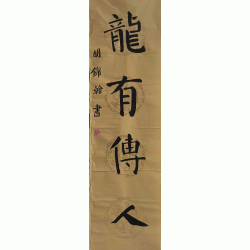 龍有傳人
胡錦韜書